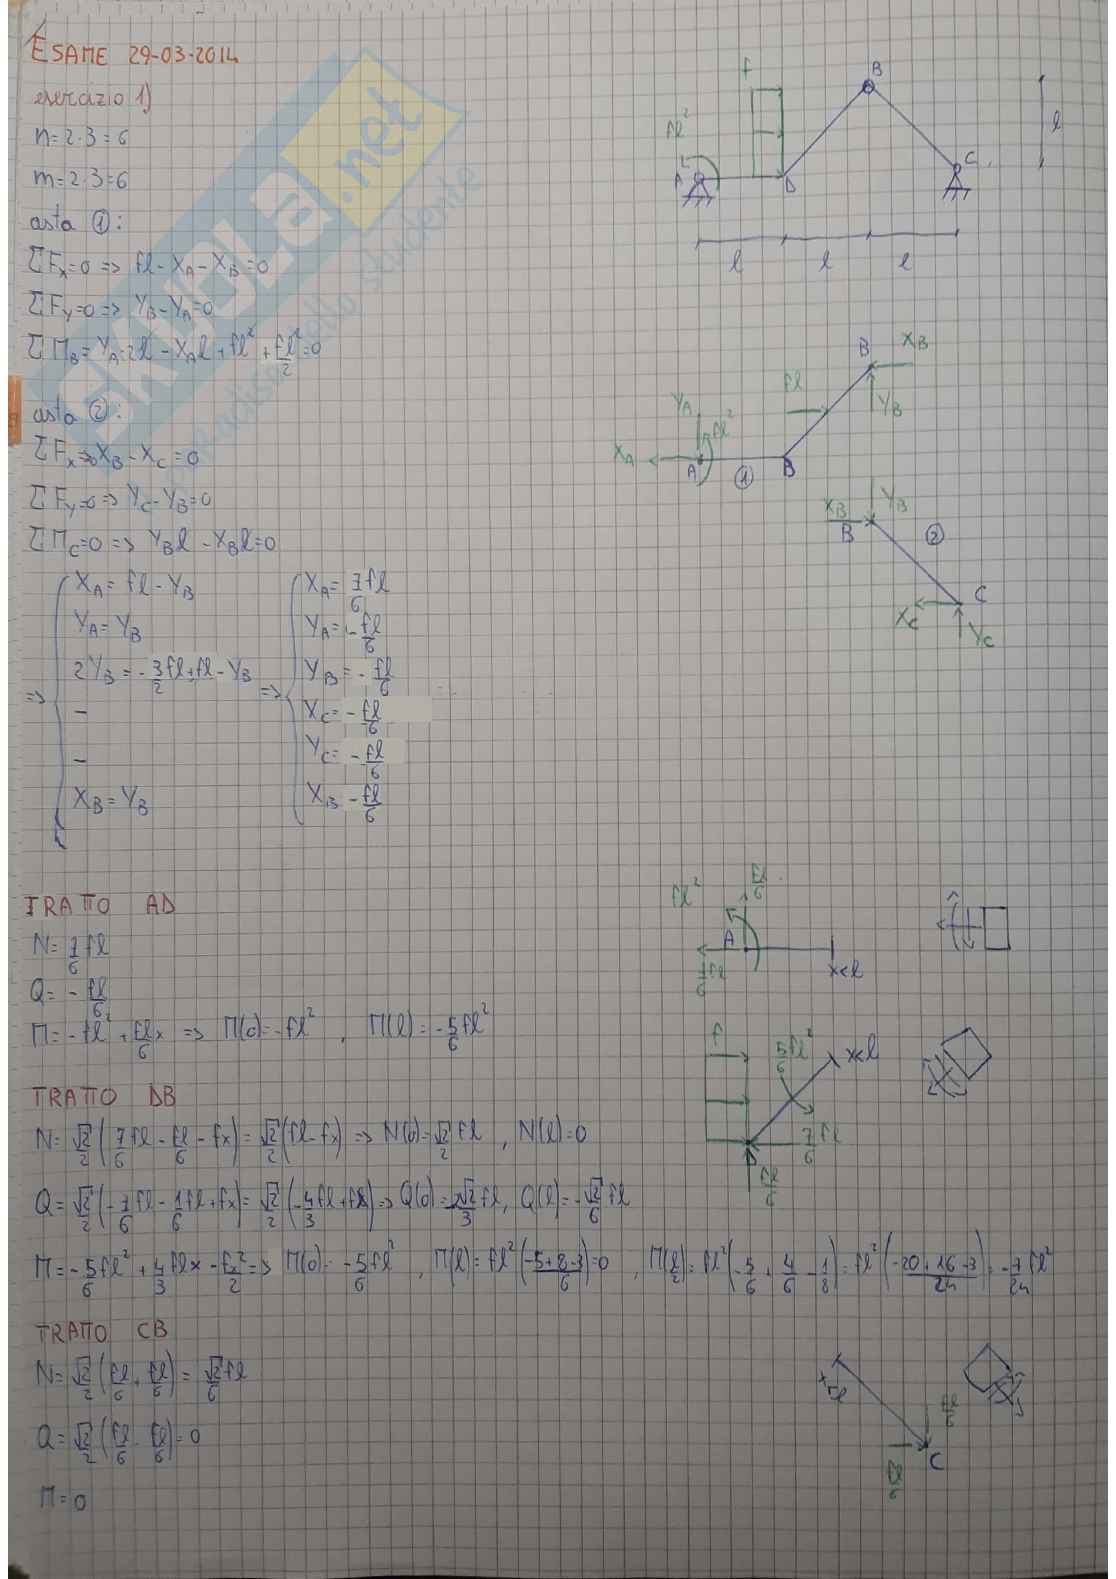 ESAME 29-03-2014
esercizio 1)
n=2·3=6
m=2·3=6
asta ①:
ΣFx=0 => fl-XA-XB=0
ΣFy=0 => YB-YA=0
ΣMB=YA·2l-XAl+fl²+fl²/2=0
asta ②:
ΣFx=>0 XB-XC=0
ΣFy=0 => YC-YB=0
ΣMC=0 => YBl-XBl=0
XA=fl-YB
YA=YB
=> 2YB=-3/2fl+fl-YB
-
-
XB=YB
=> XA=7/6fl
YA=-fl/6
YB=-fl/6
XC=-fl/6
YC=-fl/6
XB -fl/6
f
B
fl²
A
D
C
l
l
l
l
B
XB
fl
YB
YA
fl²
XA
A
①
B
XB
YB
B
②
C
XC
YC
TRATTO AD
N=7/6fl
Q=-fl/6
M=-fl²+fl/6x => M(0)=-fl², M(l)=-5/6fl²
fl²
fl/6
A
7/6fl
x<l
TRATTO DB
N=√2/2(7/6fl-fl/6-fx)=√2/2(fl-fx) => N(0)=√2/2fl, N(l)=0
Q=√2/2(-7/6fl-1/6fl+fx)=√2/2(-4/3fl+fx) => Q(0)=-2√2/3fl, Q(l)=-√2/6fl
M=-5/6fl²+4/3flx-fx²/2 => M(0)=-5/6fl², M(l)=fl²(-5+8-3/6)=0, M(l/2)=fl²(-5/6+4/6-1/8)=fl²(-20+16-3/24)=-7/24fl²
f
5/6fl²
x<l
D
7/6fl
fl/6
TRATTO CB
N=√2/2(fl/6+fl/6)=√2/6fl
Q=√2/2(fl/6-fl/6)=0
M=0
x<l
fl/6
C
fl/6
SKUOLA.net